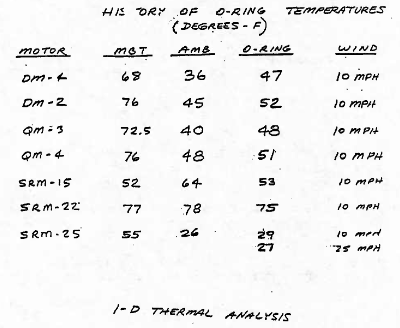 HISTORY OF O-RING TEMPERATURES
(DEGREES - F)
MOTOR MBT AMB O-RING WIND
DM-4 68 36 47 10 MPH
DM-2 76 45 52 10 MPH
QM-3 72.5 40 48 10 MPH
QM-4 76 48 51 10 MPH
SRM-15 52 64 53 10 MPH
SRM-22 77 78 75 10 MPH
SRM-25 55 26 29 10 MPH
27 25 MPH
1-D THERMAL ANALYSIS